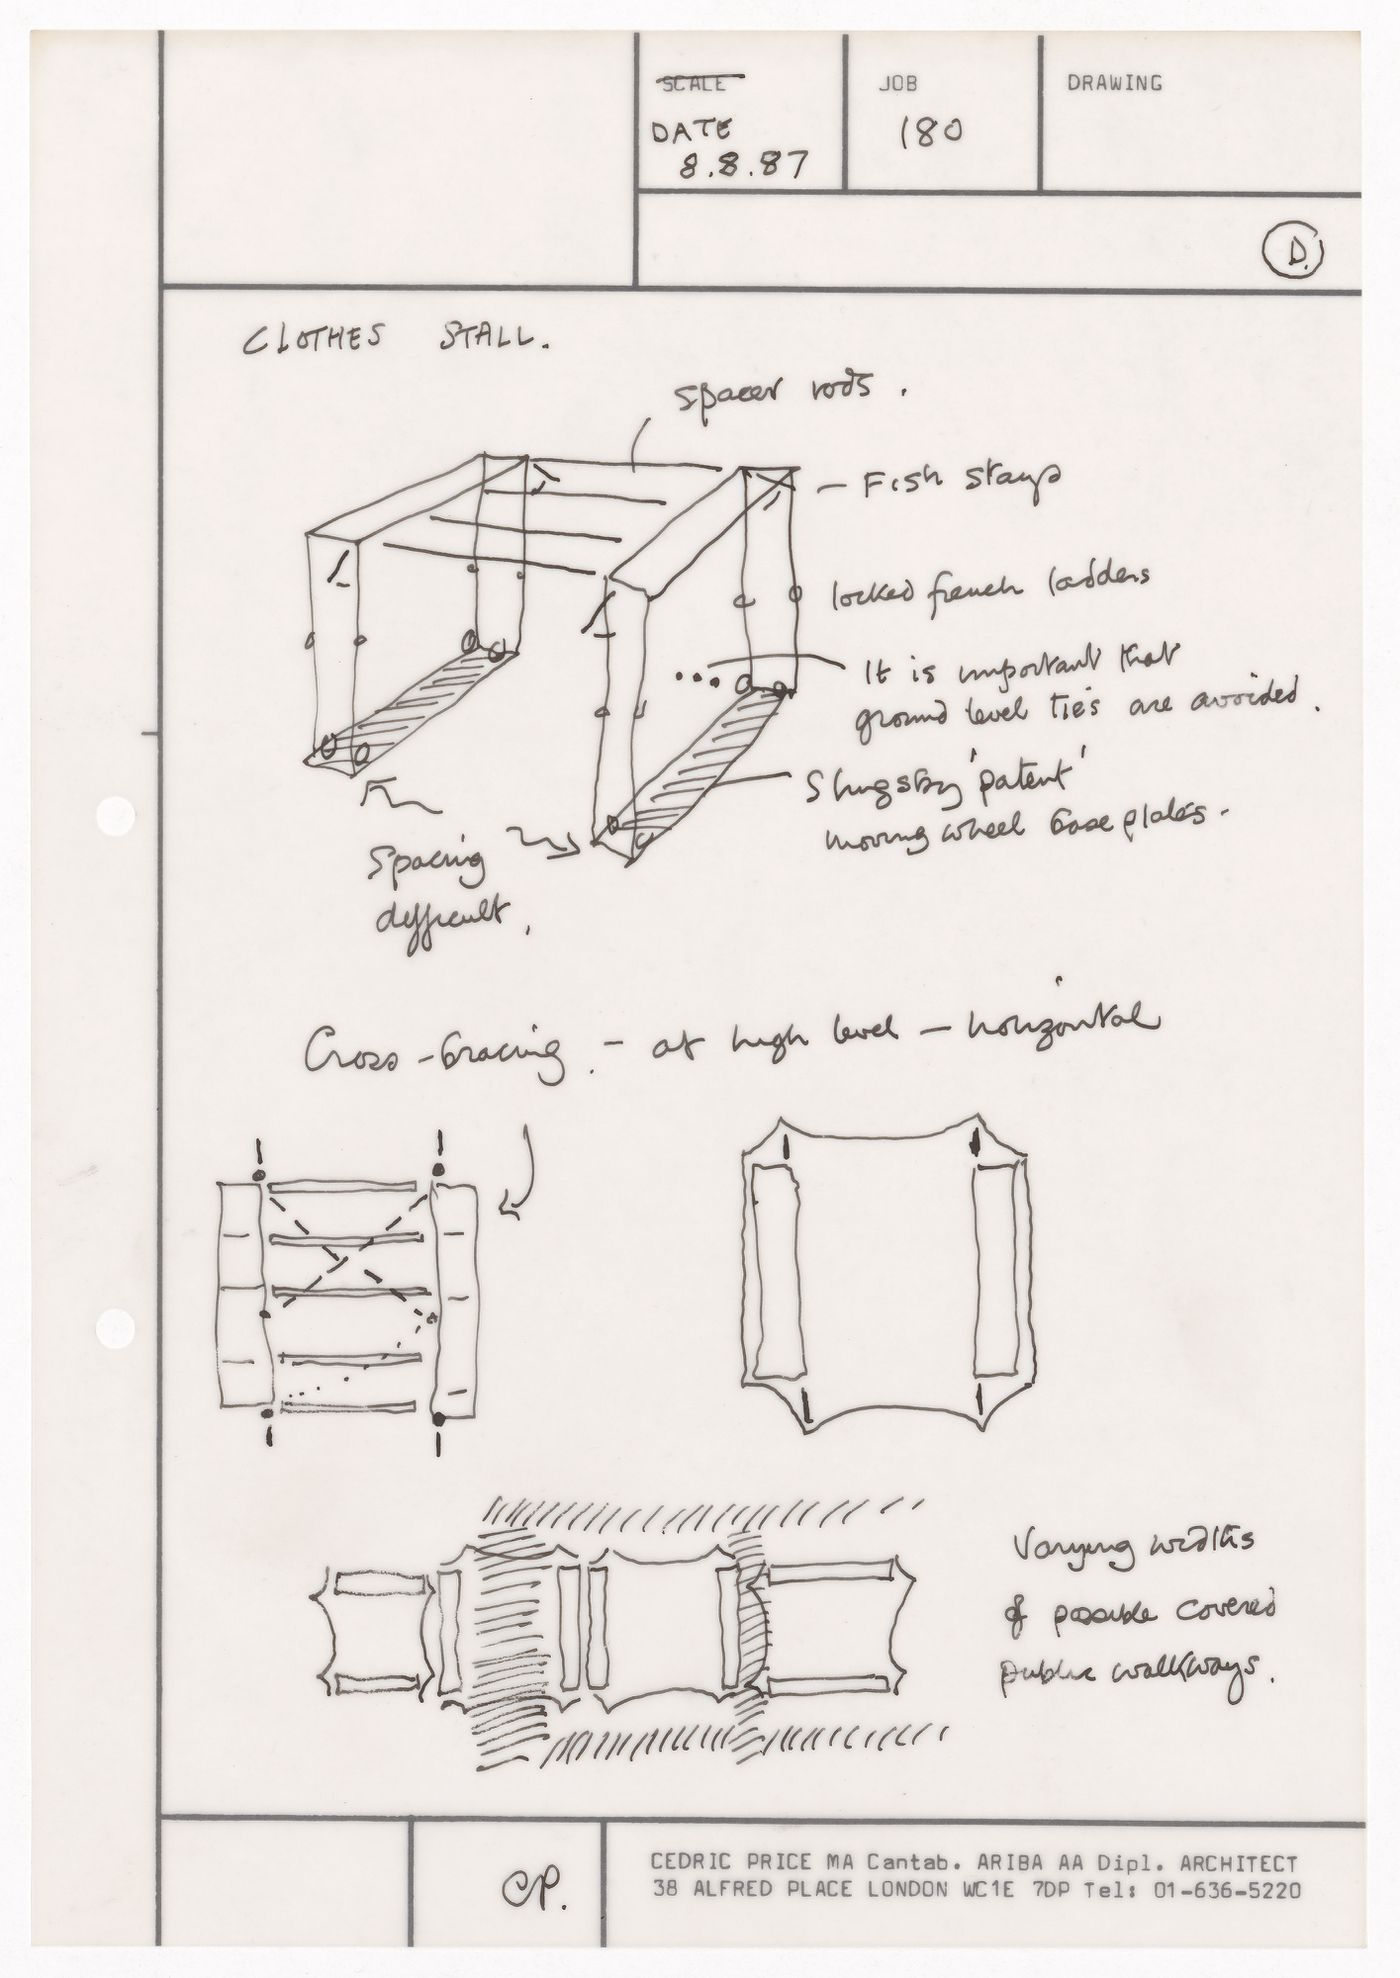 SCALE
DATE
8.8.87
JOB
180
DRAWING
D.
CLOTHES STALL.
spacer rods.
– Fish stays
locked french ladders
It is important that
ground level ties are avoided.
Slingsby 'patent'
moving wheel base plates.
Spacing
difficult.
Cross-bracing. – at high level – horizontal
Varying widths
of possible covered
public walkways.
CP.
CEDRIC PRICE MA Cantab. ARIBA AA Dipl. ARCHITECT
38 ALFRED PLACE LONDON WC1E 7DP Tel: 01-636-5220